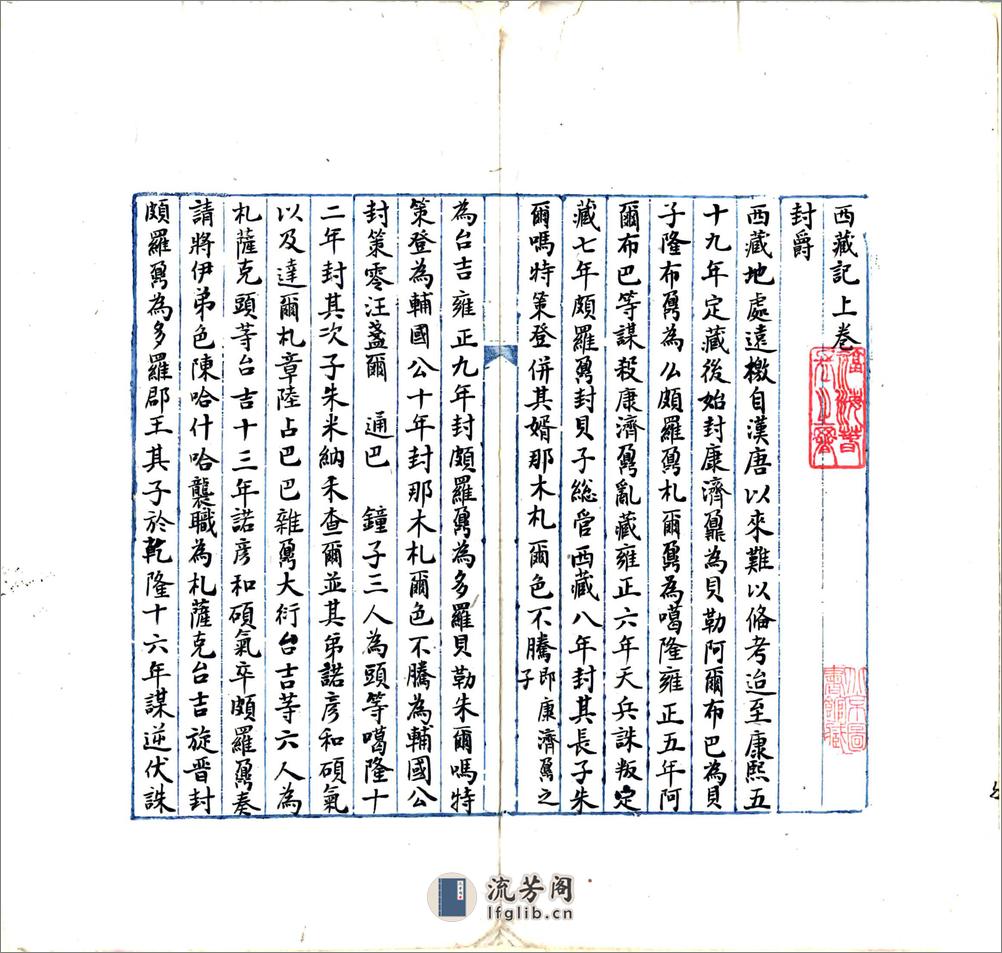 西藏記上卷
封爵
西藏地處遠檄自漢唐以來難以俻考迨至康熙五
十九年定藏後始封康濟鼐為貝勒阿爾布巴為貝
子隆布鼐為公頗羅鼐札爾鼐為噶隆雍正五年阿
爾布巴等謀殺康濟鼐亂藏雍正六年天兵誅叛定
藏七年頗羅鼐封貝子總管西藏八年封其長子朱
爾嗎特策登併其婿那木札爾色不騰即康濟鼐之子
為台吉雍正九年封頗羅鼐為多羅貝勒朱爾嗎特
策登為輔國公十年封那木札爾色不騰為輔國公
封策零汪盞爾 通巴 鐘子三人為頭等噶隆十
二年封其次子朱米納禾查爾並其弟諾彦和碩氣
以及達爾札章陸占巴巴雜鼐大衍台吉等六人為
札薩克頭等台吉十三年諾彦和碩氣卒頗羅鼐奏
請將伊弟色陳哈什哈襲職為札薩克台吉旋晋封
頗羅鼐為多羅郡王其子於乾隆十六年謀逆伏誅
流芳阁
lfglib.cn